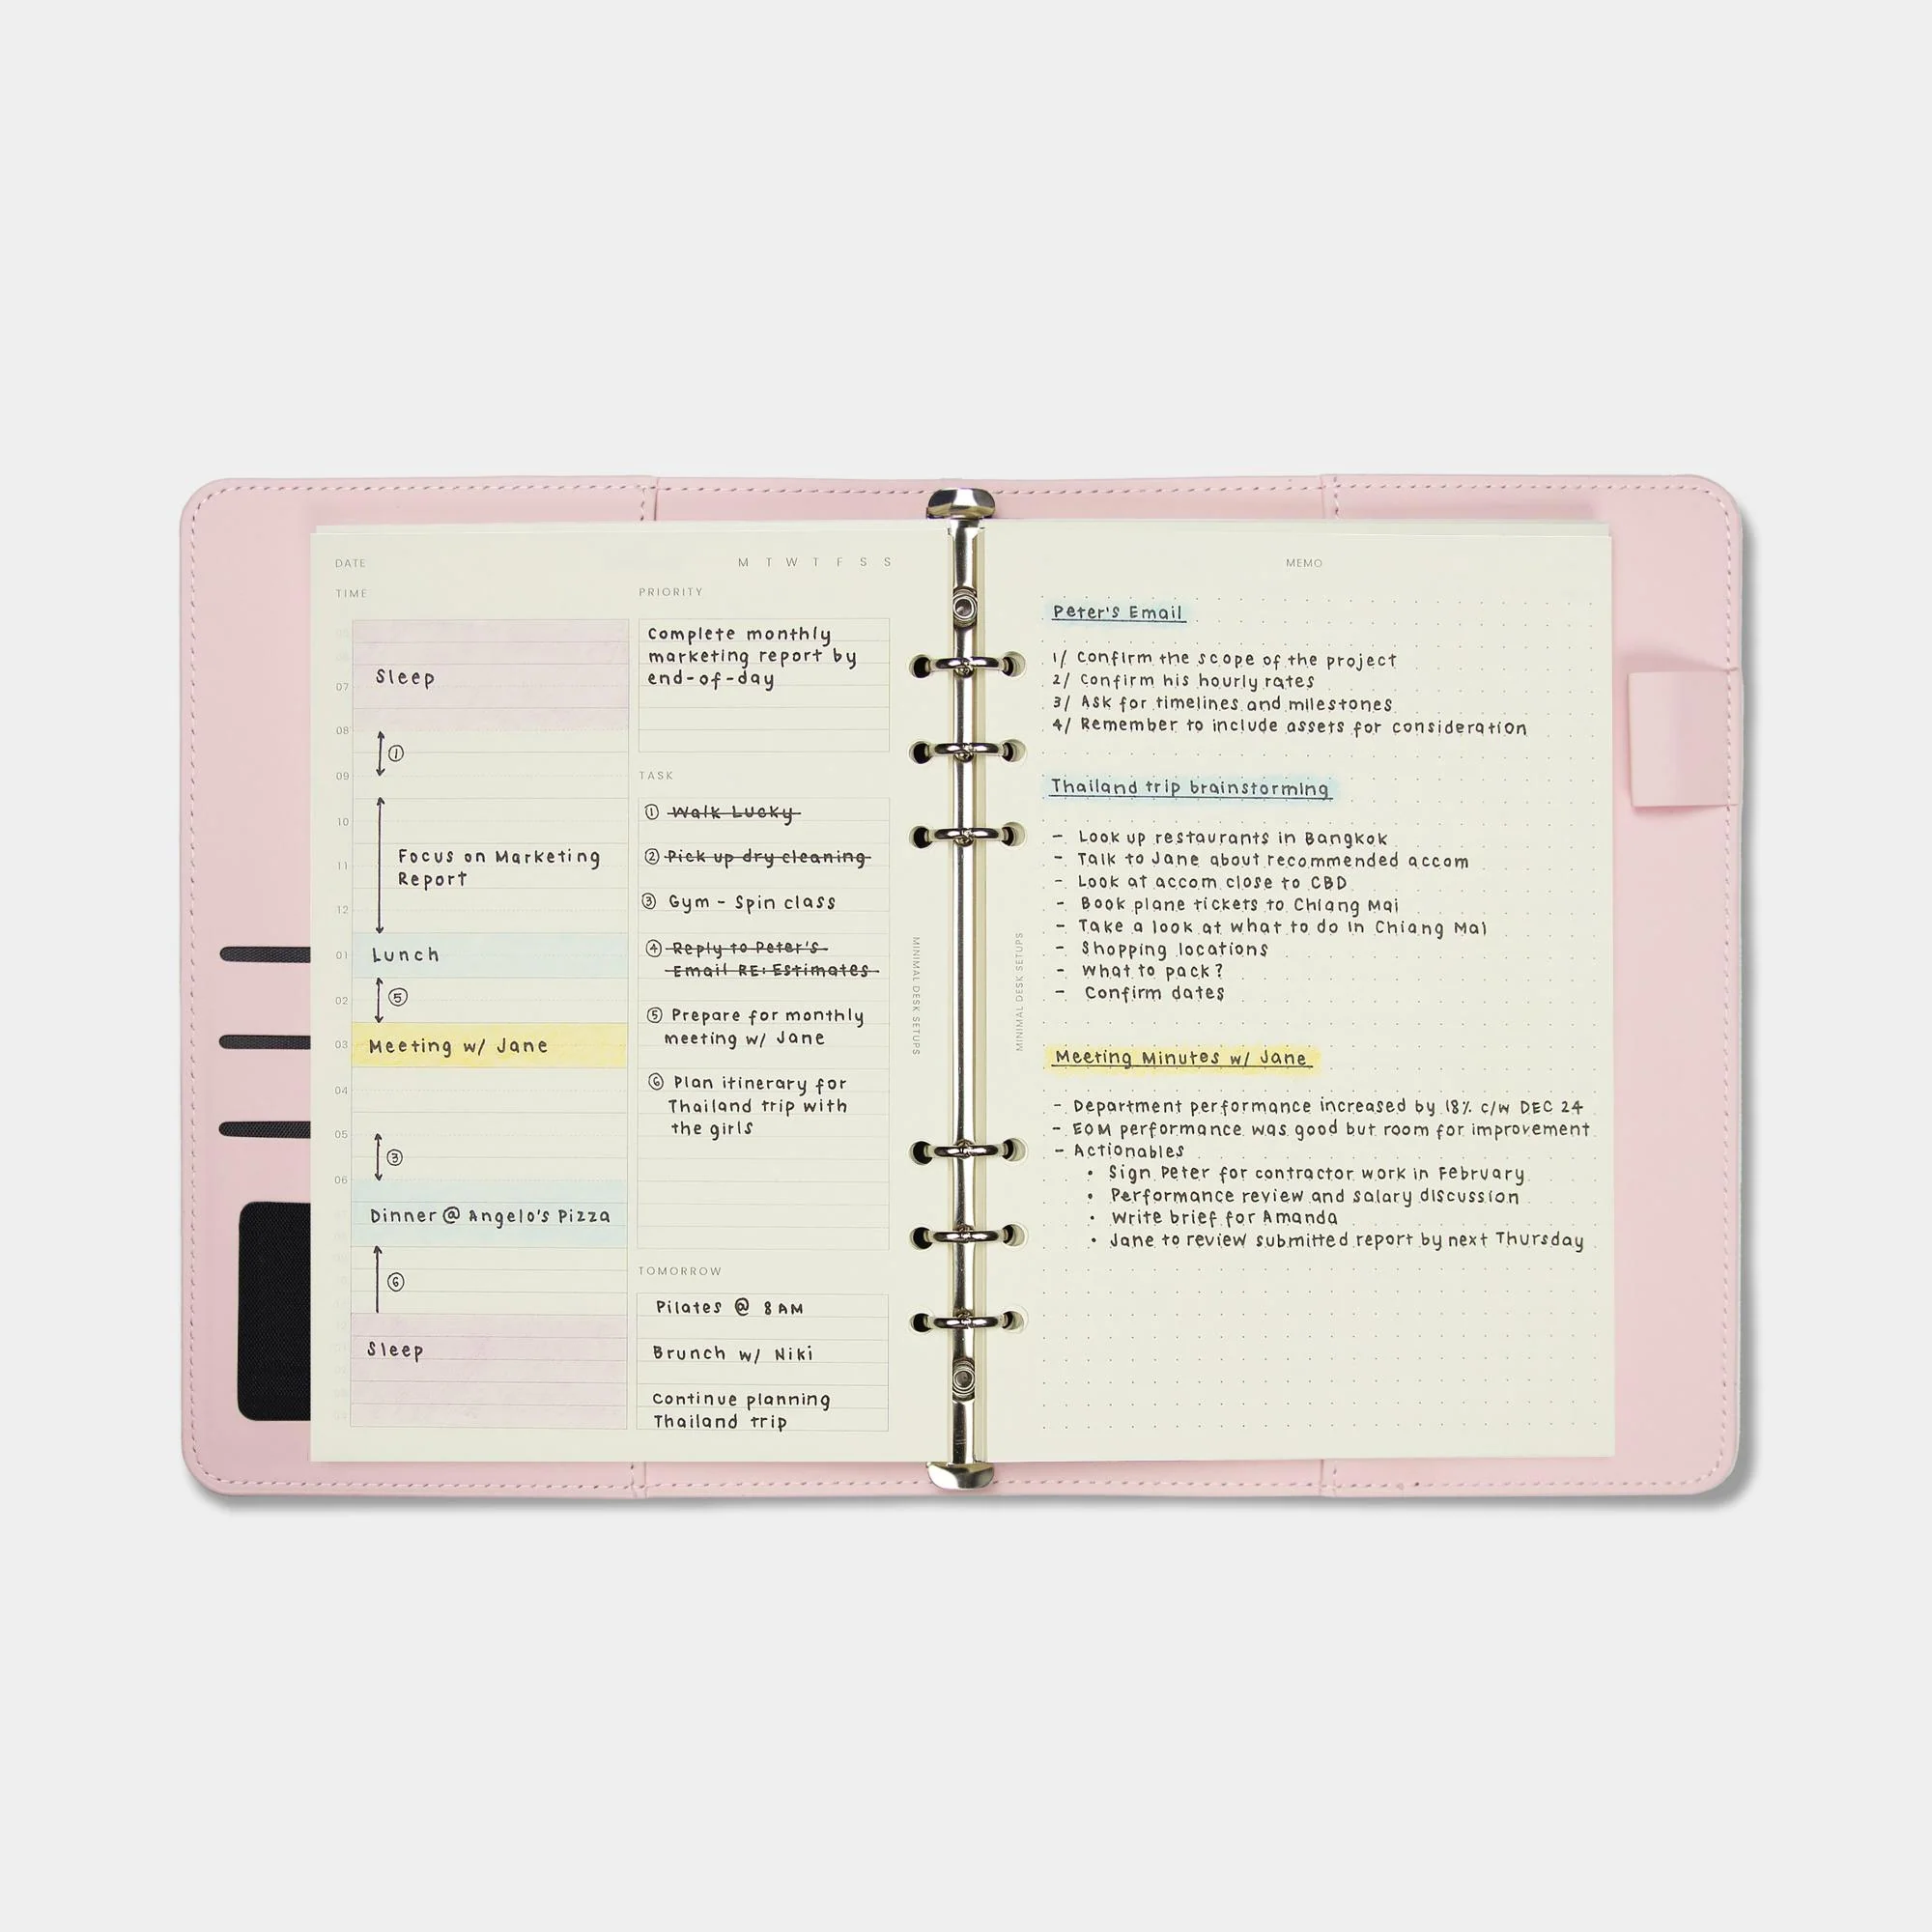 DATE
M T W T F S S
TIME
Sleep
07
08
①
09
10
Focus on Marketing
11
Report
12
01
Lunch
02
⑤
03
Meeting w/ Jane
04
05
③
06
Dinner @ Angelo's Pizza
⑥
Sleep
PRIORITY
Complete monthly
marketing report by
end-of-day
TASK
① Walk Lucky
② Pick up dry cleaning
③ Gym - Spin class
④ Reply to Peter's
Email RE: Estimates
⑤ Prepare for monthly
meeting w/ Jane
⑥ Plan itinerary for
Thailand trip with
the girls
TOMORROW
Pilates @ 8AM
Brunch w/ Niki
Continue planning
Thailand trip
MINIMAL DESK SETUPS
MINIMAL DESK SETUPS
MEMO
Peter's Email
1/ Confirm the scope of the project
2/ Confirm his hourly rates
3/ Ask for timelines and milestones
4/ Remember to include assets for consideration
Thailand trip brainstorming
- Look up restaurants in Bangkok
- Talk to Jane about recommended accom
- Look at accom close to CBD
- Book plane tickets to Chiang Mai
- Take a look at what to do in Chiang Mai
- Shopping locations
- What to pack?
- Confirm dates
Meeting Minutes w/ Jane
- Department performance increased by 18% c/w DEC 24
- EOM performance was good but room for improvement
- Actionables
• Sign Peter for contractor work in February
• Performance review and salary discussion
• Write brief for Amanda
• Jane to review submitted report by next Thursday